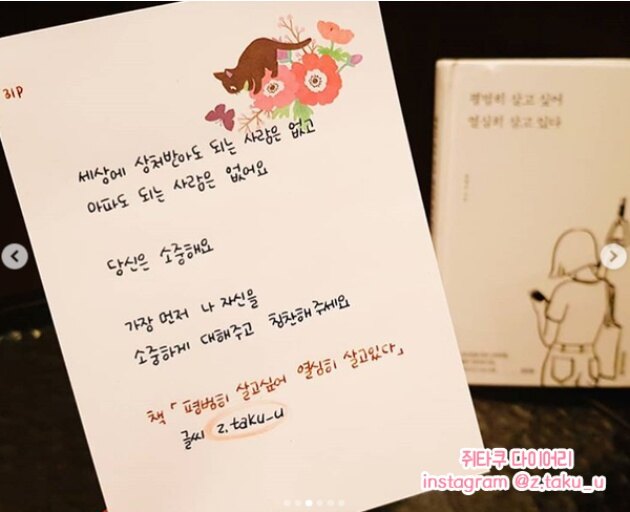 31P
세상에 상처받아도 되는 사람은 없고
아파도 되는 사람은 없어요
당신은 소중해요
가장 먼저 나 자신을
소중하게 대해주고 칭찬해주세요
책 「평범히 살고싶어 열심히 살고있다」
글씨 z.taku_u
평범히 살고 싶어
열심히 살고 있다
쥐타쿠 다이어리
instagram @z.taku_u